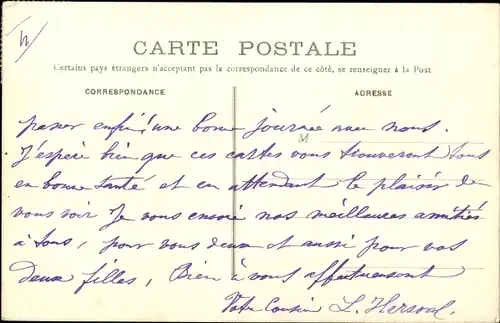 CARTE POSTALE
Certains pays étrangers n'acceptant pas la correspondance de ce côté, se renseigner à la Post
CORRESPONDANCE
ADRESSE
M
passer enfin! une bonne journée avec nous.
J'espère bien que ces cartes vous trouveront tous
en bonne santé et en attendant le plaisir de
vous voir Je vous envoie nos meilleures amitiés
à tous, pour vous deux et aussi pour vos
deux filles, Bien à vous affectueusement
Votre Cousin L.